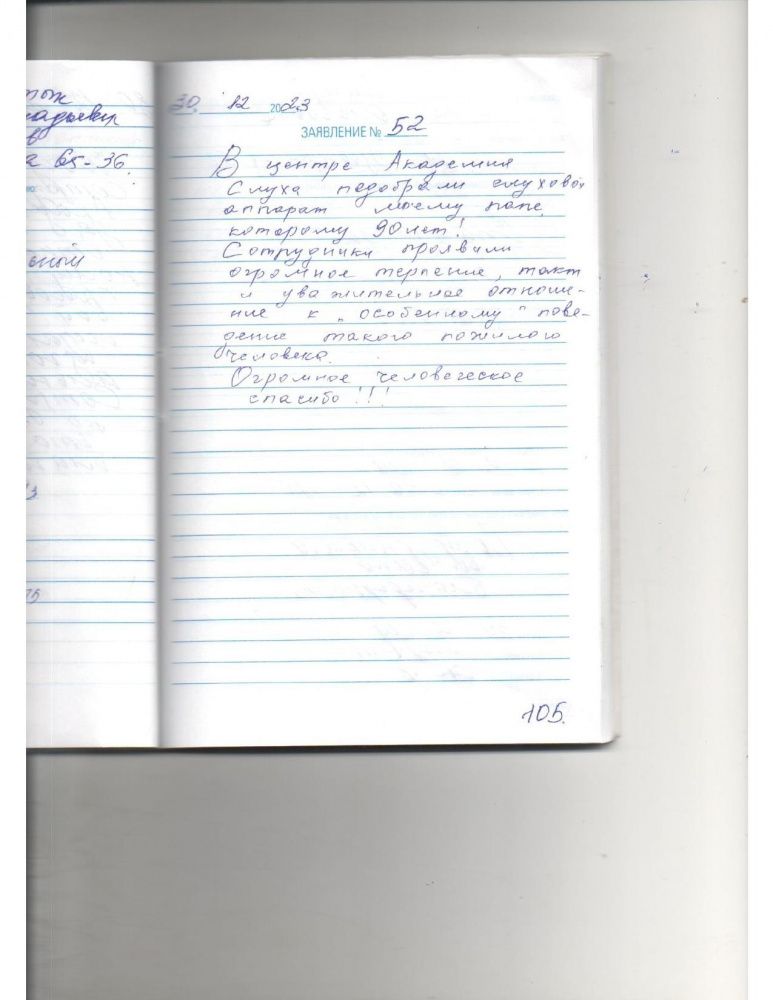 тож
а 65-36.
30. 12 2023
ЗАЯВЛЕНИЕ № 52
В центре Академия
Слуха подобрали слуховой
аппарат моему папе,
которому 90 лет!
Сотрудники проявили
огромное терпение, такт
и уважительное отноше-
ние к „особенному" пове-
дение такого пожилого
человека.
Огромное человеческое
спасибо!!!
105.